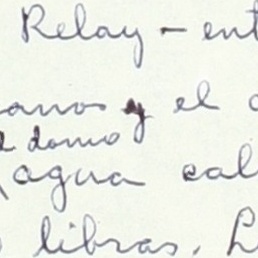 Relay - ent
anos y el
domo
Ragua cal
libras. L